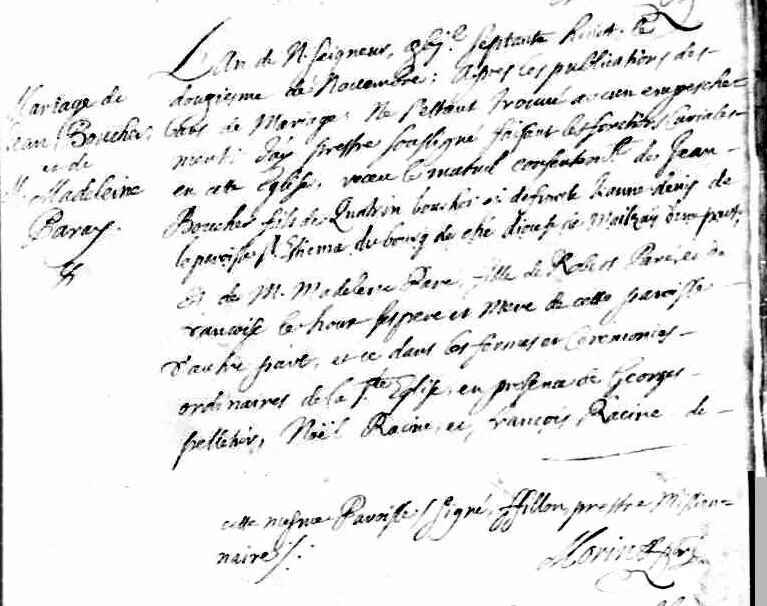 Mariage de
Jean Boucher
et de
M. Madeleine
Paray.
L'An de N. Seigneur, septante huict le
dougiesme de Novembre: Apres les publications des
bans de Mariage, Ne s'estant trouvé aucun empesche-
ment: J'ay prestre soussigné faisant les fonctions Curiales
en cette Eglise, receu le mutuel consentemt. de Jean
Boucher fils de boucher et deffuncte Jeanne denis de
la paroisse St. Estienne du bourg de
Et de M. Madeleine Pare, fille de Robert Pare, et de
francoise le hout ses pere et Mere de cette paroisse
d'autre part, et ce dans les formes et Ceremonies
ordinaires de la Ste Eglise, en presence de Georges
pelletier, Noël Racine, et, françois Racine de
cette mesme Paroisse / Signé, ffillon, prestre Mission-
naire /.
Morin